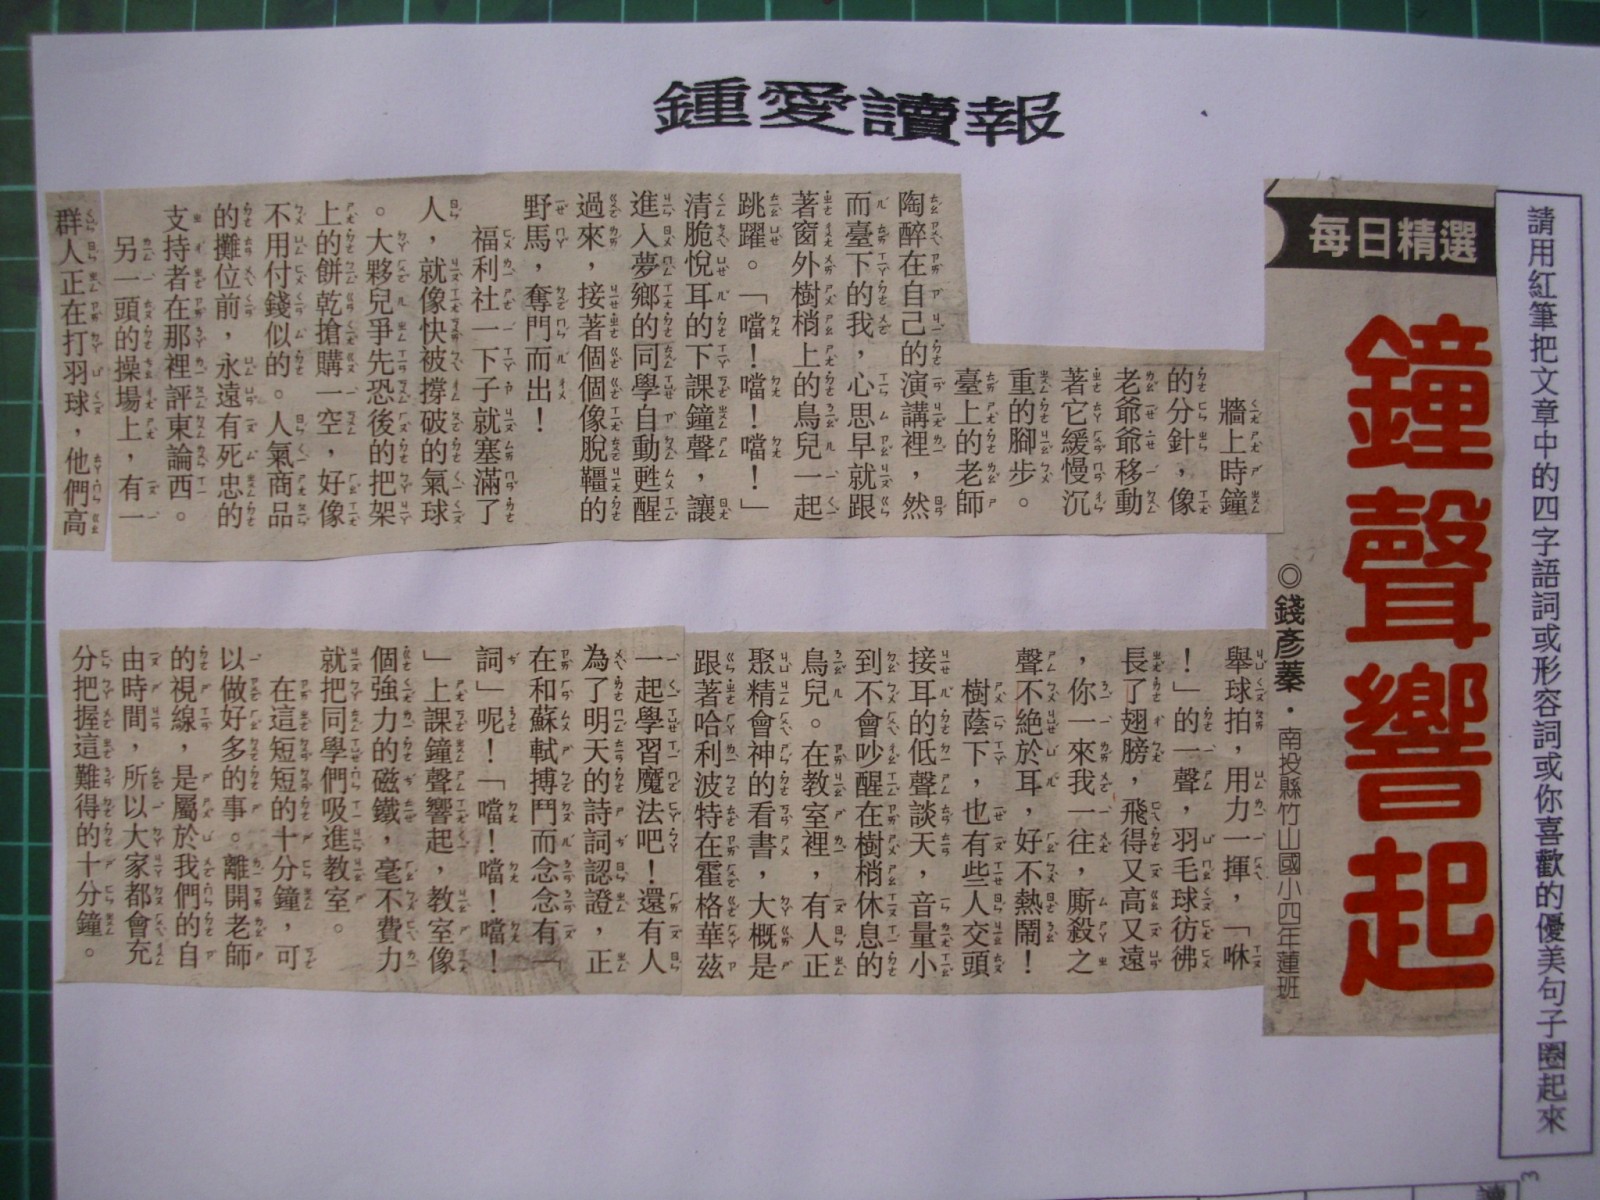 鍾愛讀報
請用紅筆把文章中的四字語詞或形容詞或你喜歡的優美句子圈起來
每日精選
鐘聲響起
◎錢彥蓁・南投縣竹山國小四年蓮班
牆上時鐘
的分針，像
老爺爺移動
著它緩慢沉
重的腳步。
臺上的老師
陶醉在自己的演講裡，然
而臺下的我，心思早就跟
著窗外樹梢上的鳥兒一起
跳躍。「噹！噹！噹！」
清脆悅耳的下課鐘聲，讓
進入夢鄉的同學自動甦醒
過來，接著個個像脫韁的
野馬，奪門而出！
福利社一下子就塞滿了
人，就像快被撐破的氣球
。大夥兒爭先恐後的把架
上的餅乾搶購一空，好像
不用付錢似的。人氣商品
的攤位前，永遠有死忠的
支持者在那裡評東論西。
另一頭的操場上，有一
群人正在打羽球，他們高
舉球拍，用力一揮，「咻
！」的一聲，羽毛球彷彿
長了翅膀，飛得又高又遠
，你一來我一往，廝殺之
聲不絕於耳，好不熱鬧！
樹蔭下，也有些人交頭
接耳的低聲談天，音量小
到不會吵醒在樹梢休息的
鳥兒。在教室裡，有人正
聚精會神的看書，大概是
跟著哈利波特在霍格華茲
一起學習魔法吧！還有人
為了明天的詩詞認證，正
在和蘇軾搏鬥而念念有
詞」呢！「噹！噹！噹！
」上課鐘聲響起，教室像
個強力的磁鐵，毫不費力
就把同學們吸進教室。
在這短短的十分鐘，可
以做好多的事。離開老師
的視線，是屬於我們的自
由時間，所以大家都會充
分把握這難得的十分鐘。
3